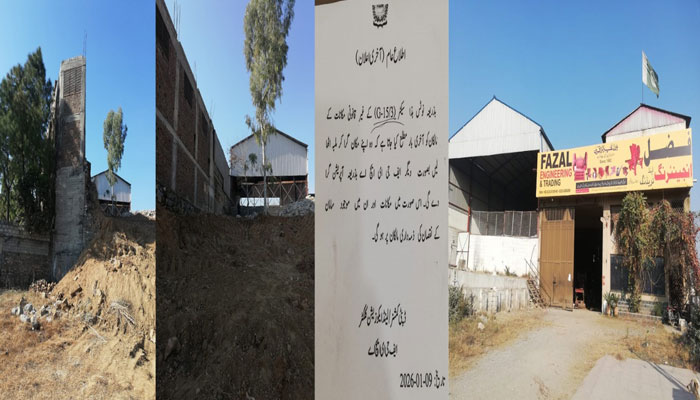 اطلاع عام (آخری اعلان)
بذریعہ نوٹس ہذا سیکٹر (G-15/3) کے غیر قانونی مکانات کے
مالکان کو آخری بار مطلع کیا جاتا ہے کہ وہ اپنے مکان گرا کر ملبہ اٹھا
لیں بصورت دیگر ایف جی ای ایچ اے بذریعہ آپریشن گرا
دے گی۔ اس صورت میں مکانات اور ان میں موجود سامان
کے نقصان کی ذمہ داری مالکان پر ہو گی۔
ڈپٹی کمشنر/لینڈ ایکوزیشن کلکٹر
ایف جی ای ایچ اے
تاریخ: 09-01-2026
FAZAL
ENGINEERING
& TRADING
فضل
انجینئرنگ